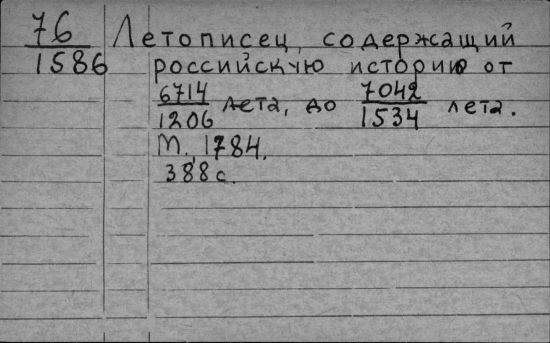 76/1586 Летописец, содержащий
российскую историю от
6714/1206 лета, до 7042/1534 лета.
М., 1784.
388 с.